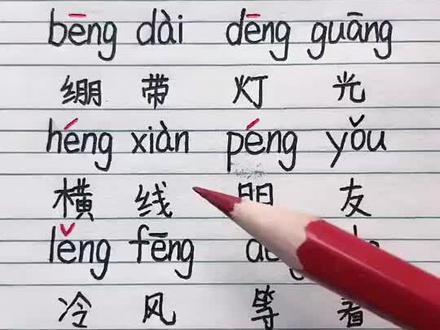 bēng dài dēng guāng
绷 带 灯 光
héng xiàn péng yǒu
横 线 朋 友
lěng fēng
冷 风 等 着